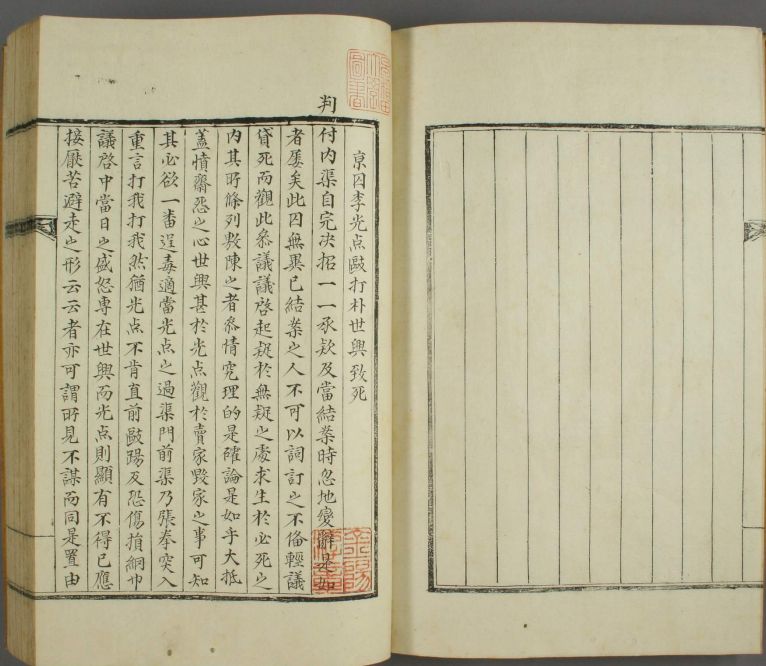 京囚李光点毆打朴世興致死
判
付內渠自完决招一一承欵及當結案時忽地變辭是如
者屡矣此囚無異已結案之人不可以詞訂之不俻輕議
貸死而觀此叅議議啓起疑於無疑之處求生於必死之
內其所條列敷陳之者叅情究理的是確論是如乎大抵
盖憤齋怨之心世興甚於光点觀於賣家毁家之事可知
其必欲一番逞毒適當光点之過渠門前渠乃張拳突入
重言打我打我然猶光点不肯直前毆踢反恐傷損綱巾
議啓中當日之盛怒專在世興而光点則顯有不得已應
接厭苦避走之形云云者亦可謂所見不謀而同是置由